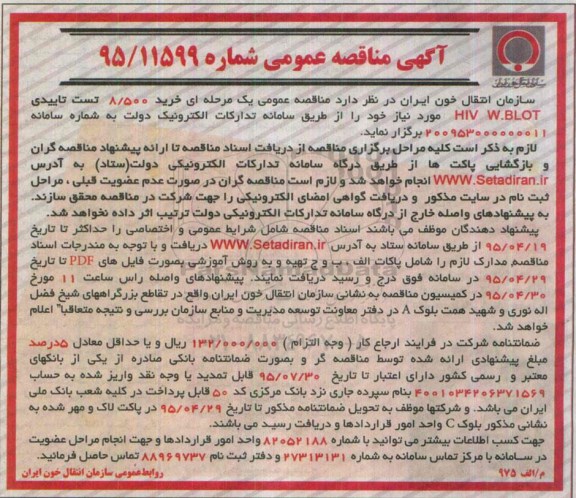 آگهی مناقصه عمومی شماره ۹۵/۱۱۵۹۹
سازمان انتقال خون ایران در نظر دارد مناقصه عمومی یک مرحله ای خرید ۸/۵۰۰ تست تاییدی
HIV W.BLOT مورد نیاز خود را از طریق سامانه تدارکات الکترونیک دولت به شماره سامانه
۲۰۰۹۵۳۰۰۰۰۰۰۰۱۱ برگزار نماید.
لازم به ذکر است کلیه مراحل برگزاری مناقصه از دریافت اسناد مناقصه تا ارائه پیشنهاد مناقصه گران
و بازگشایی پاکت ها از طریق درگاه سامانه تدارکات الکترونیکی دولت(ستاد) به آدرس
WWW.Setadiran.ir انجام خواهد شد و لازم است مناقصه گران در صورت عدم عضویت قبلی ، مراحل
ثبت نام در سایت مذکور و دریافت گواهی امضای الکترونیکی را جهت شرکت در مناقصه محقق سازند.
به پیشنهادهای واصله خارج از درگاه سامانه تدارکات الکترونیکی دولت ترتیب اثر داده نخواهد شد.
پیشنهاد دهندگان موظف می باشند اسناد مناقصه شامل شرایط عمومی و اختصاصی را حداکثر تا تاریخ
۹۵/۰۴/۱۹ از طریق سامانه ستاد به آدرس WWW.Setadiran.ir دریافت و با توجه به مندرجات اسناد
مناقصه، مدارک لازم را شامل پاکات الف ، ب و ج تهیه و به روش آموزشی بصورت فایل های PDF تا تاریخ
۹۵/۰۴/۲۹ در سامانه فوق درج و رسید دریافت نمایند. پیشنهادهای واصله راس ساعت ۱۱ مورخ
۹۵/۰۴/۳۰ در کمیسیون مناقصه به نشانی سازمان انتقال خون ایران واقع در تقاطع بزرگراههای شیخ فضل
اله نوری و شهید همت بلوک A در دفتر معاونت توسعه مدیریت و منابع سازمان بررسی و نتیجه متعاقبا" اعلام
خواهد شد.
ضمانتنامه شرکت در فرایند ارجاع کار ( وجه التزام ) ۱۳۲/۰۰۰/۰۰۰ ریال و یا حداقل معادل ۵درصد
مبلغ پیشنهادی ارائه شده توسط مناقصه گر و بصورت ضمانتنامه بانکی صادره از یکی از بانکهای
معتبر و رسمی کشور دارای اعتبار تا تاریخ ۹۵/۰۷/۳۰ قابل تمدید یا وجه نقد واریز شده به حساب
۴۰۰۱۰۳۴۲۰۶۳۷۱۵۶۹ بنام سپرده جاری نزد بانک مرکزی کد ۵۰ قابل پرداخت در کلیه شعب بانک ملی
ایران می باشد. و شرکتها موظف به تحویل ضمانتنامه مذکور تا تاریخ ۹۵/۰۴/۲۹ در پاکت لاک و مهر شده به
نشانی مذکور بلوک C واحد امور قراردادها و دریافت رسید می باشند.
جهت کسب اطلاعات بیشتر می توانید با شماره ۸۲۰۵۲۱۸۸ واحد امور قراردادها و جهت انجام مراحل عضویت
در سامانه با مرکز تماس سامانه به شماره ۲۷۳۱۳۱۳۱ و دفتر ثبت نام ۸۸۹۶۹۷۳۷ تماس حاصل فرمائید.
م/الف ۹۷۵ روابط عمومی سازمان انتقال خون ایران